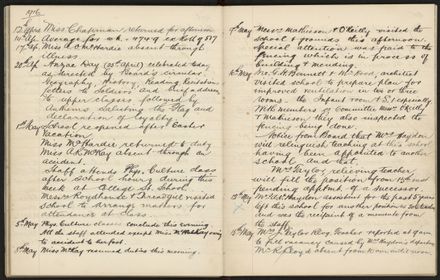 1916
12 Apr Miss Chapman returned for afternoon
14 Ap. Average for wk. 474.9 ex roll of 517
17 Ap. Miss A. C. McHardie absent through
illness
20 Ap. Anzac Day (25 April) celebrated today
as directed by Board's circular
Geography, History, Reading, Recitations
letters to Soldiers, and brief address
to upper classes followed by
Anthems, saluting the Flag and
declaration of loyalty.
1st May School reopened after Easter
Vacation.
Miss McHardie returned to duty
Miss A. R. McKay absent through an
accident.
Staff attends Phys. Culture class
after school hours during this
week at College St. School
Messrs Roydhouse & Braddock visited
school to arrange matters for
attendance at class.
5th May Phys. Culture classes conclude this evening.
All the staff attended except Miss McKay owing
to accident to her foot.
8th May Miss McKay resumed duties this morning.
9th May Messrs Mathieson & O'Reilly visited the
school & grounds this afternoon
special attention was paid to the
fencing which is in process of
building & mending
10th May Mr G. H. Bennett & Mr Wood, architect
visited school to prepare plan for
improved ventilation in two or three
rooms the Infant room & S1 especially
With members of committee Messrs O'Reilly
& Mathieson they also inspected the
fencing being done.
Notice from Board that Mr Haydon
will relinquish teaching at this school
having been appointed to another
school and that
Mr Taylor relieving teacher
will fill the position from 15th inst
pending apptmt. of a successor.
13th May Mr Haydon assistant for the past 5 years
left this school for another position
and was the recipient of a memento from
the staff
15th May Mr Taylor Relvg. Teacher reported at 9 am
to fill vacancy caused by Mr Haydon's departure
Mr Lloyd absent from 10 am